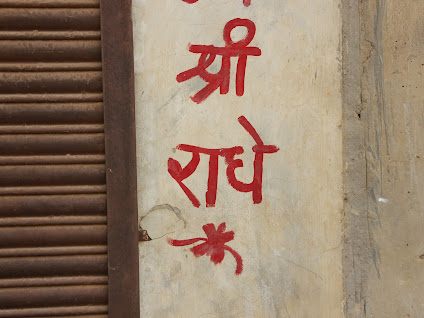 श्री
राधे